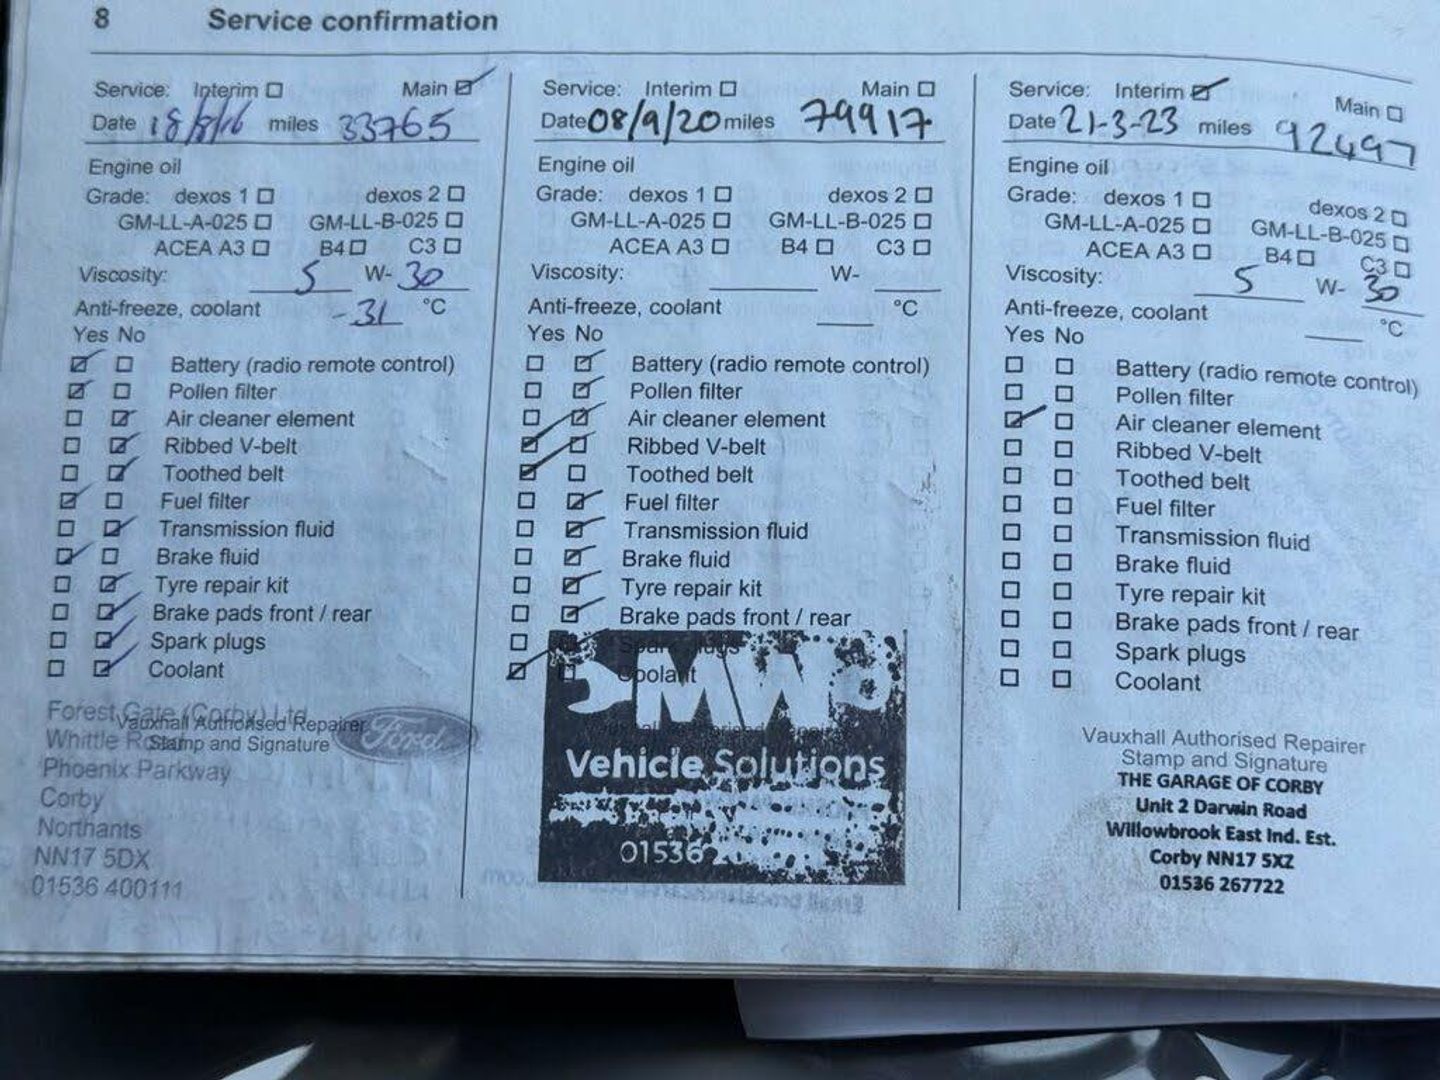 8 Service confirmation
Service: Interim Main
Date 18/8/16 miles 33765
Engine oil
Grade: dexos 1 dexos 2
GM-LL-A-025 GM-LL-B-025
ACEA A3 B4 C3
Viscosity: 5 W- 30
Anti-freeze, coolant -31 °C
Yes No
Battery (radio remote control)
Pollen filter
Air cleaner element
Ribbed V-belt
Toothed belt
Fuel filter
Transmission fluid
Brake fluid
Tyre repair kit
Brake pads front / rear
Spark plugs
Coolant
Forest Gate (Corby) Ltd
Vauxhall Authorised Repairer
Whittle Road
Stamp and Signature
Ford
Phoenix Parkway
Corby
Northants
NN17 5DX
01536 400111
Service: Interim Main
Date 08/9/20 miles 79917
Engine oil
Grade: dexos 1 dexos 2
GM-LL-A-025 GM-LL-B-025
ACEA A3 B4 C3
Viscosity: W-
Anti-freeze, coolant °C
Yes No
Battery (radio remote control)
Pollen filter
Air cleaner element
Ribbed V-belt
Toothed belt
Fuel filter
Transmission fluid
Brake fluid
Tyre repair kit
Brake pads front / rear
Spark plugs
Coolant
Vehicle Solutions
01536
Service: Interim Main
Date 21-3-23 miles 92497
Engine oil
Grade: dexos 1 dexos 2
GM-LL-A-025 GM-LL-B-025
ACEA A3 B4 C3
Viscosity: 5 W- 30
Anti-freeze, coolant °C
Yes No
Battery (radio remote control)
Pollen filter
Air cleaner element
Ribbed V-belt
Toothed belt
Fuel filter
Transmission fluid
Brake fluid
Tyre repair kit
Brake pads front / rear
Spark plugs
Coolant
Vauxhall Authorised Repairer
Stamp and Signature
THE GARAGE OF CORBY
Unit 2 Darwin Road
Willowbrook East Ind. Est.
Corby NN17 5XZ
01536 267722